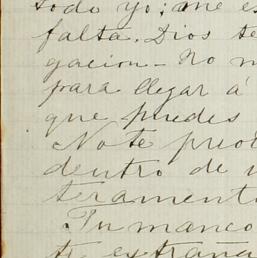 todo yo; me es
falta. Dios te
gacion - No m
para llegar á
que puedes
No te preoc
dentro de u
teramente
Tu manco
te extraña